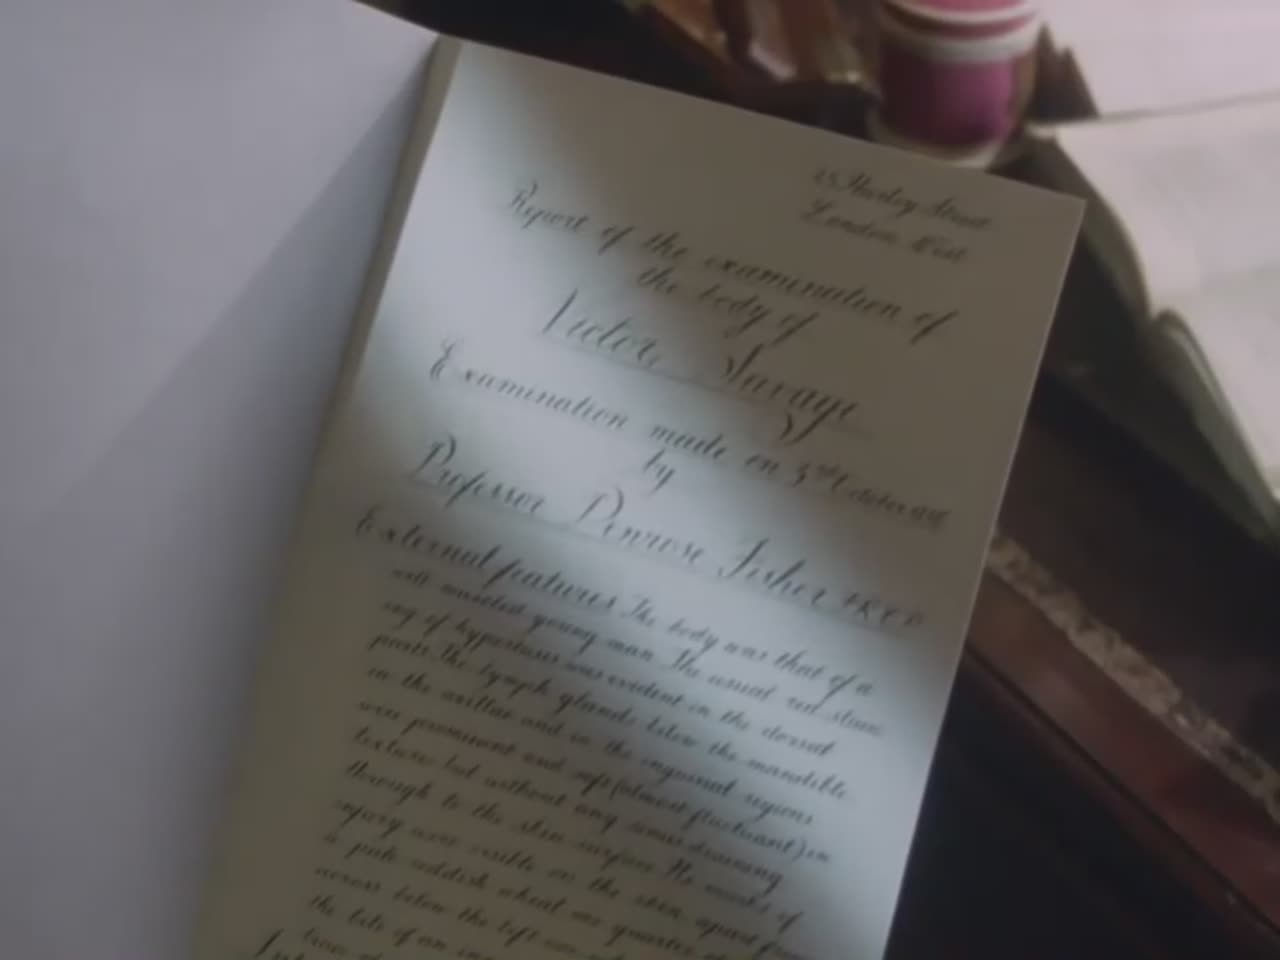 Harley Street
London West
Report of the examination of
the body of
Victor Savage
Examination made on 3rd October
by
Professor Penrose Fisher F.R.C.P.
External features The body was that of a
well muscled young man The usual red stain
ing of hypostasis was evident in the dorsal
parts. The lymph glands below the mandible
in the axillae and in the inguinal regions
were prominent and soft (almost fluctuant) in
texture but without any sinus draining
through to the skin surface. No marks of
injury were visible on the skin apart from
a pale reddish wheal one quarter
across below the left
the bite of an